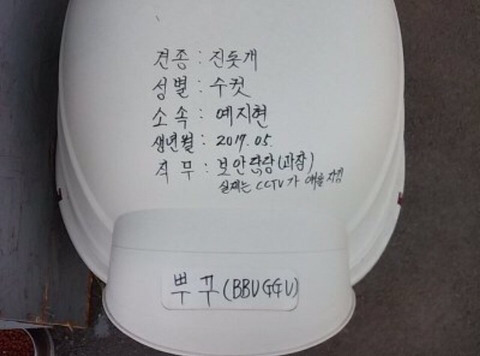 견종 : 진돗개
성별 : 수컷
소속 : 예지현
생년월 : 2017.05.
직무 : 보안담당(과장)
실제는 CCTV가 얘를 지킴
뿌꾸(BBUGGU)